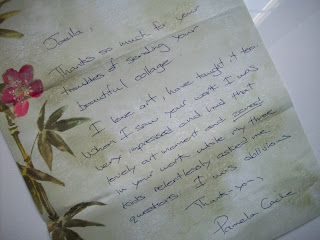 Joella,
Thanks so much for your
troubles of sending your
beautiful collage
I love art, have taught it too.
When I saw your work I was
very impressed and had that
lovely art moment and zoned
in your work while my three
kids relentlessly asked me
questions. I was oblivious
Thank-you,
Pamela